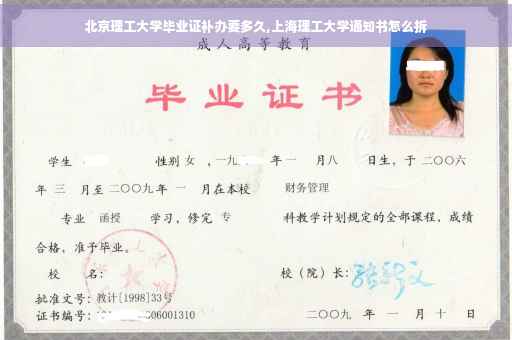 北京理工大学毕业证补办要多久,上海理工大学通知书怎么拆
成人高等教育
毕业证书
学生 性别 女 ,一九 年一 月八 日生,于二〇〇六
年 三 月至二〇〇九年 一 月在本校 财务管理
专业 函授 学习,修完 专 科教学计划规定的全部课程,成绩
合格,准予毕业。
校 名: 校(院)长:
批准文号:教计[1998]33号
证书编号: 06001310 二〇〇九 年 一 月 十 日